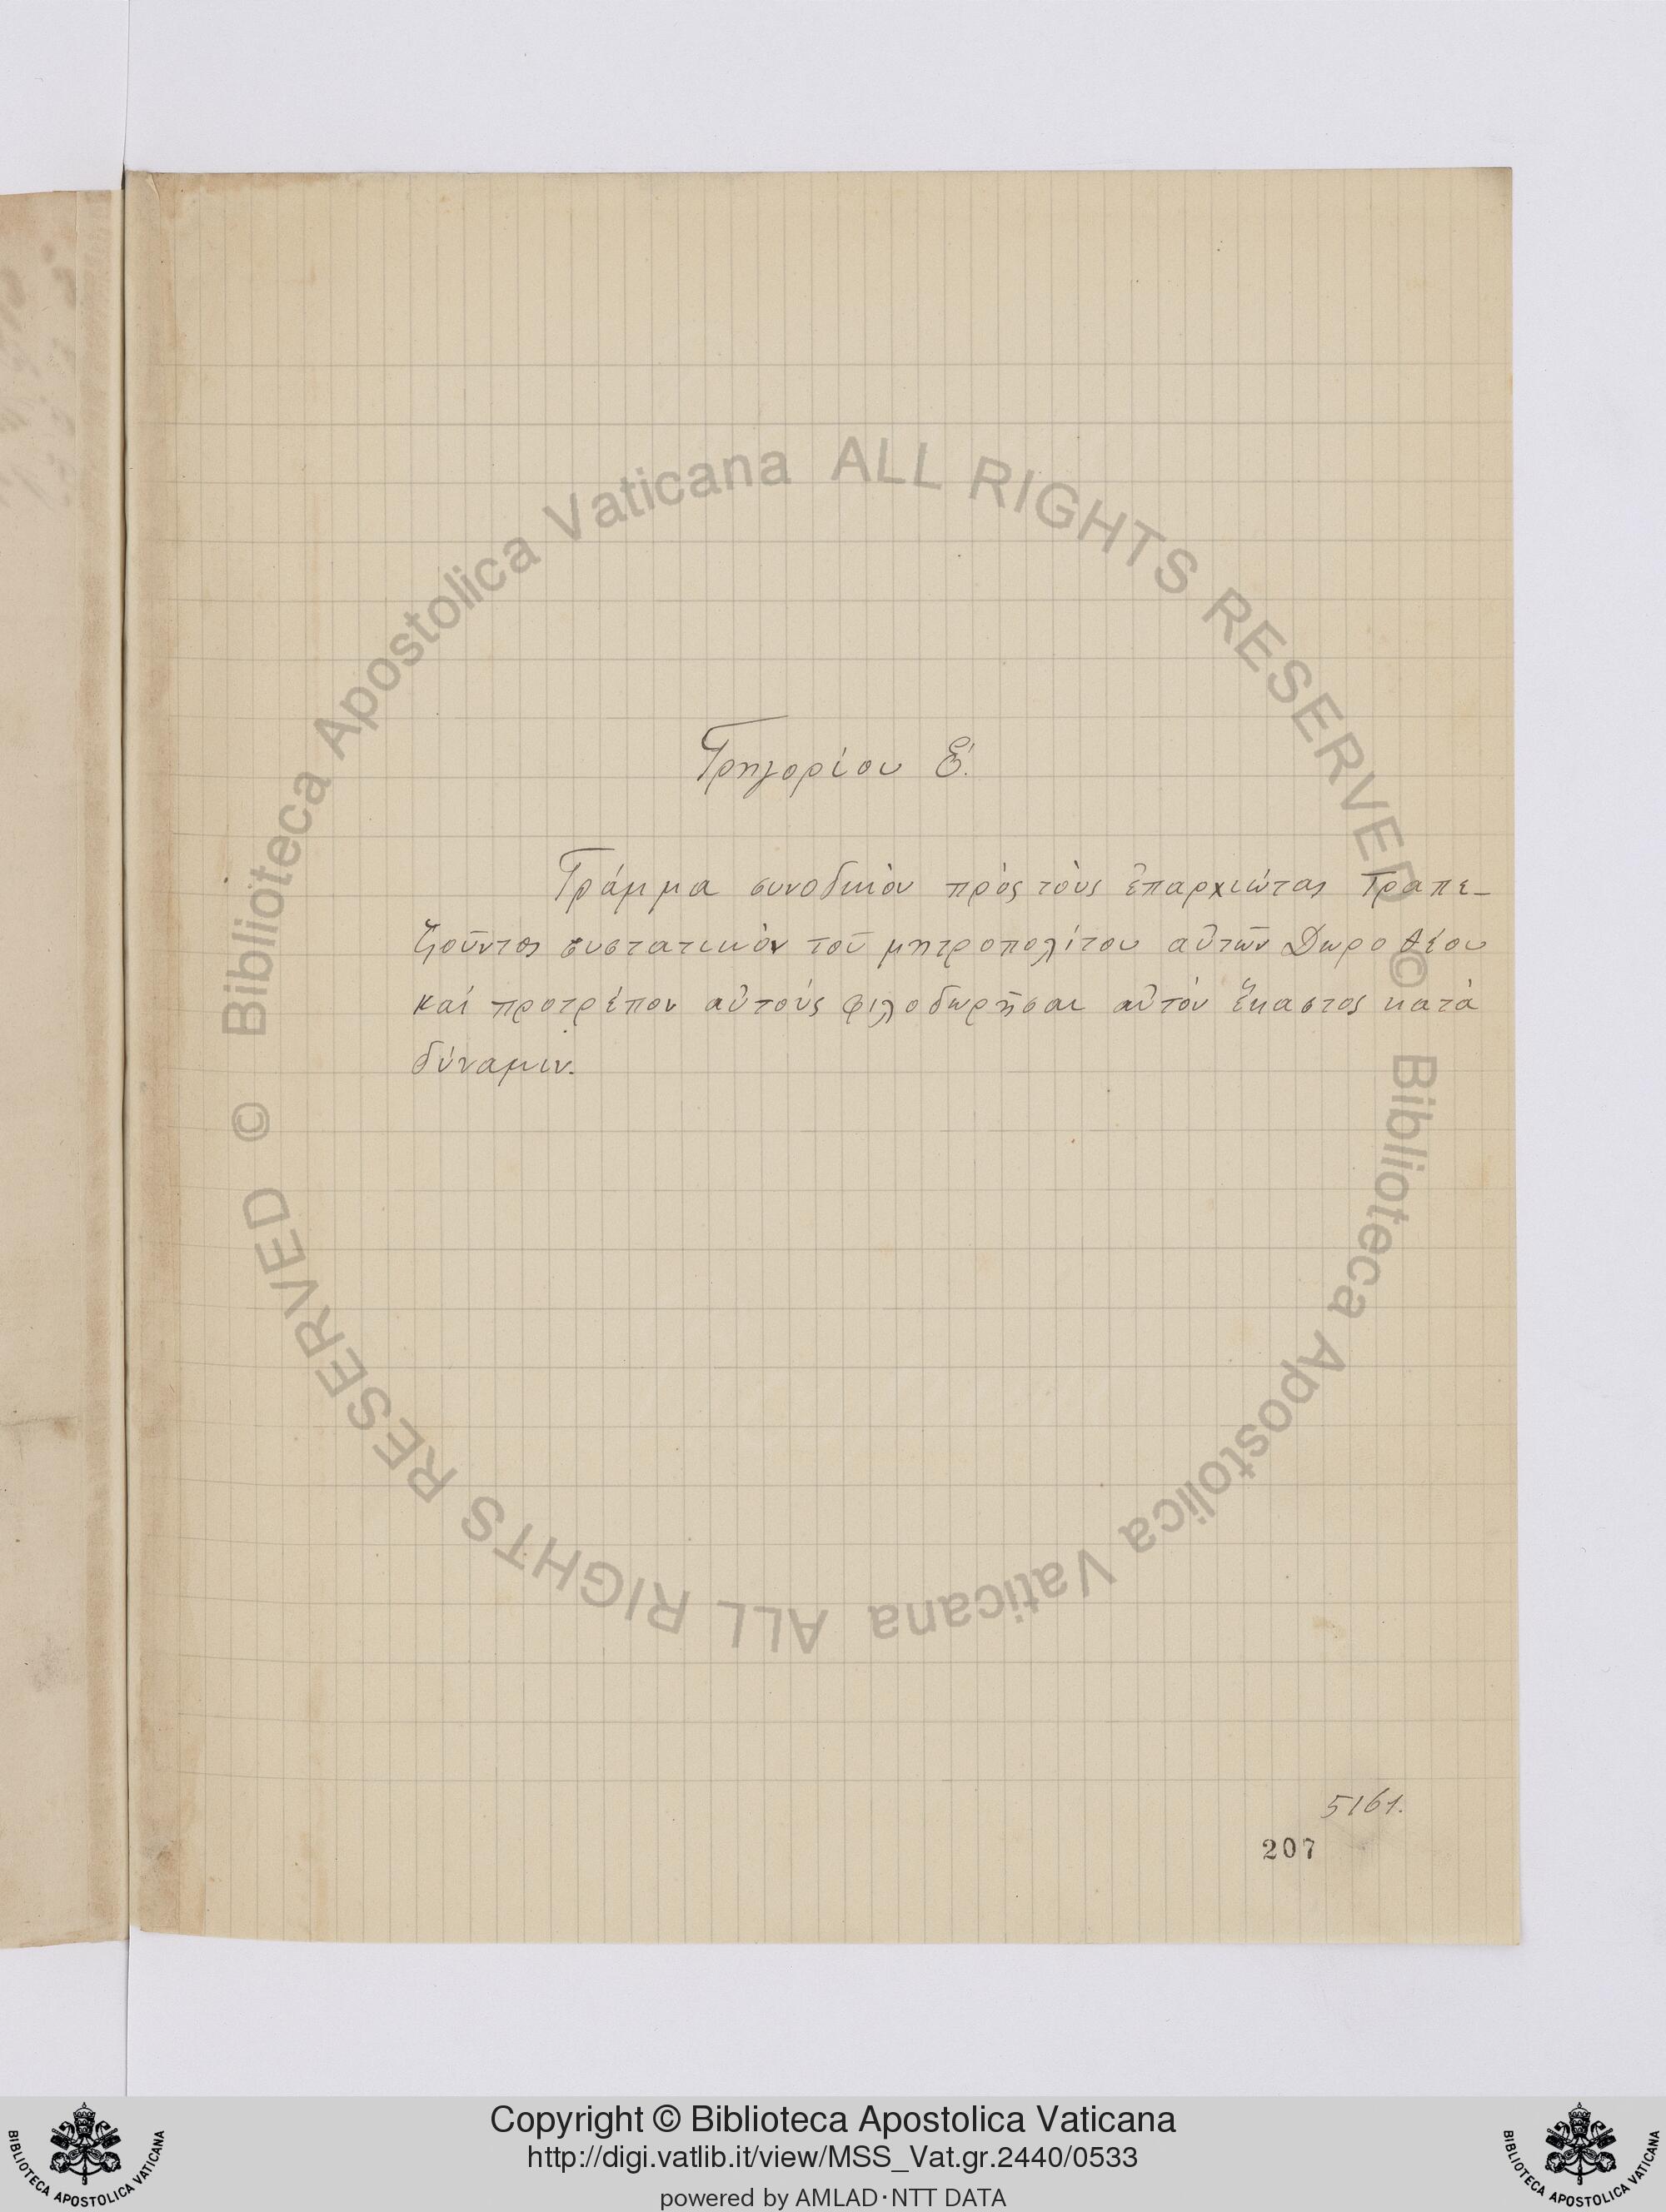 Γρηγορίου Ε΄.
Γράμμα συνοδικὸν πρὸς τοὺς ἐπαρχιώτας Τραπε-
ζοῦντος συστατικὸν τοῦ μητροπολίτου αὐτῶν Δωροθέου
καί προτρέπον αὐτούς φιλοδωρῆσαι αὐτόν ἕκαστος κατὰ
δύναμιν.
5161.
207
© Biblioteca Apostolica Vaticana ALL RIGHTS RESERVED
© Biblioteca Apostolica Vaticana ALL RIGHTS RESERVED
Copyright © Biblioteca Apostolica Vaticana
http://digi.vatlib.it/view/MSS_Vat.gr.2440/0533
powered by AMLAD·NTT DATA
BIBLIOTECA APOSTOLICA VATICANA
BIBLIOTECA APOSTOLICA VATICANA